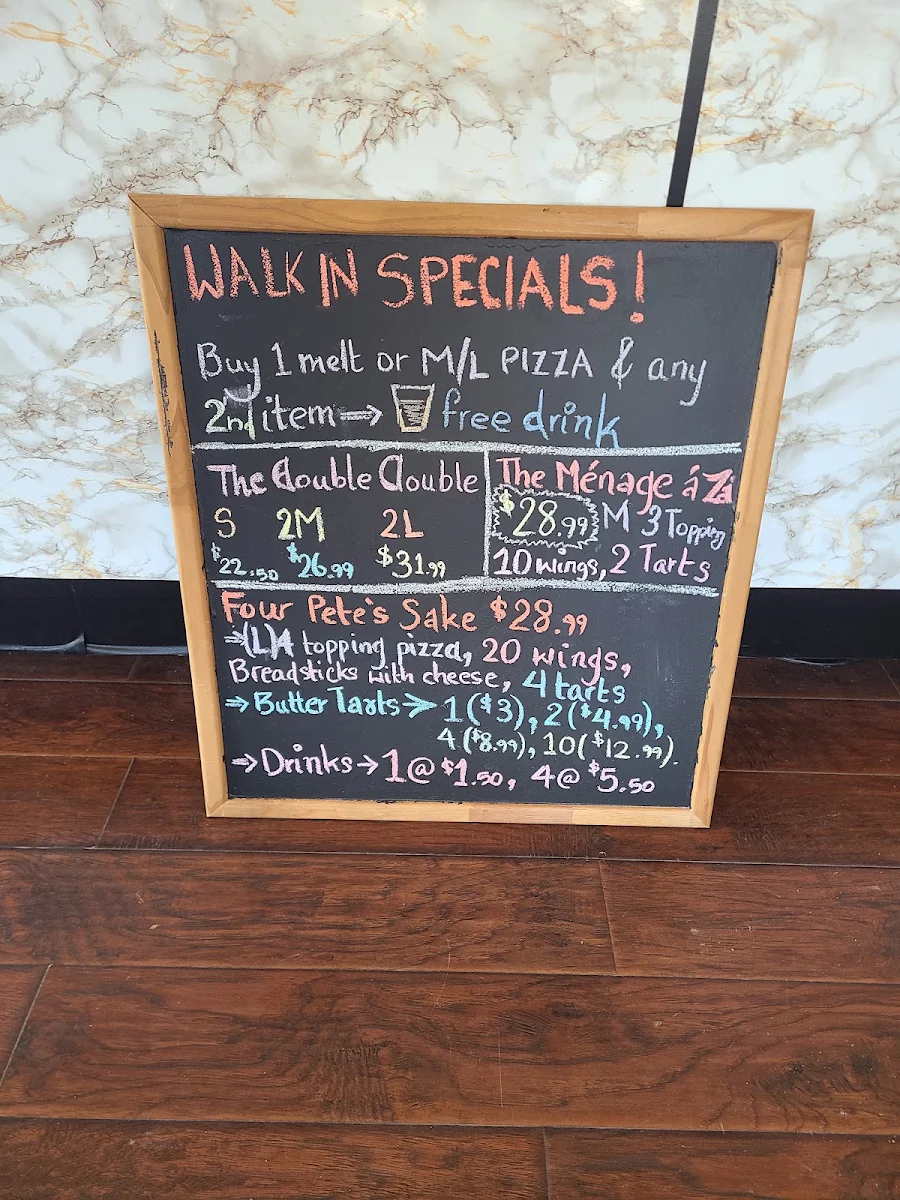 WALK IN SPECIALS!
Buy 1 melt or M/L PIZZA & any
2nd item ⇒ free drink
The Double Double
S 2M 2L
$22.50 $26.99 $31.99
The Ménage á Za
$28.99 M 3 Topping
10 wings, 2 Tarts
Four Pete's Sake $28.99
⇒(L)4 topping pizza, 20 wings,
Breadsticks with cheese, 4 tarts
⇒ Butter Tarts → 1($3), 2($4.99),
4($8.99), 10($12.99).
⇒ Drinks → 1@$1.50, 4@$5.50